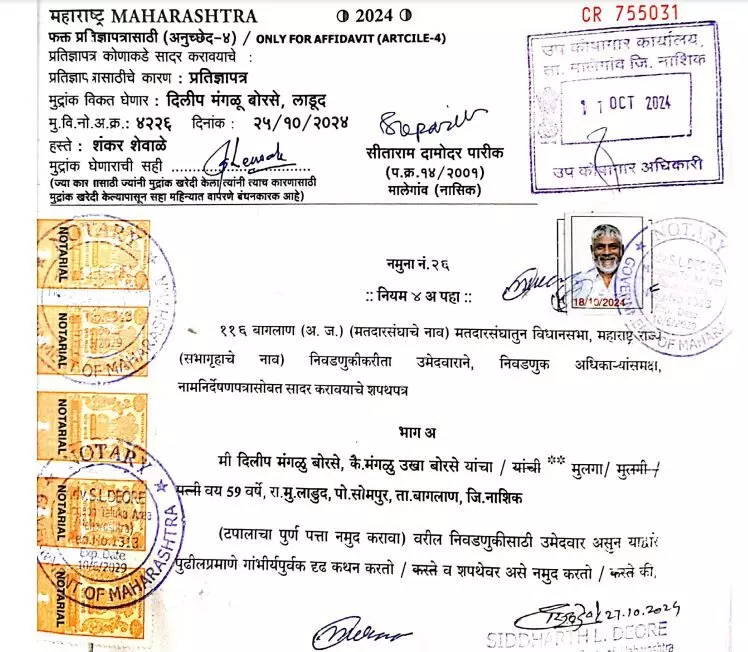 महाराष्ट्र MAHARASHTRA
2024
CR 755031
फक्त प्रतिज्ञापत्रासाठी (अनुच्छेद-४) / ONLY FOR AFFIDAVIT (ARTCILE-4)
प्रतिज्ञापत्र कोणाकडे सादर करावयाचे :
प्रतिज्ञापत्रासाठीचे कारण : प्रतिज्ञापत्र
मुद्रांक विकत घेणार : दिलीप मंगळू बोरसे, लाडूद
मु.वि.नो.अ.क्र.: ४२२६ दिनांक : २५/१०/२०२४
हस्ते : शंकर शेवाळे
मुद्रांक घेणाराची सही
(ज्या कारणासाठी ज्यांनी मुद्रांक खरेदी केला त्यांनी त्याच कारणासाठी
मुद्रांक खरेदी केल्यापासून सहा महिन्यात वापरणे बंधनकारक आहे)
सीताराम दामोदर पारीक
(प.क्र.१४/२००१)
मालेगांव (नासिक)
उप कोषागार कार्यालय,
ता. मालेगांव जि. नाशिक
11 OCT 2024
उप कोषागार अधिकारी
नमुना नं.२६
:: नियम ४ अ पहा ::
18/10/2024
११६ बागलाण (अ. ज.) (मतदारसंघाचे नाव) मतदारसंघातुन विधानसभा, महाराष्ट्र राज्य
(सभागृहाचे नाव) निवडणुकीकरीता उमेदवाराने, निवडणुक अधिकाऱ्यांसमक्ष,
नामनिर्देषणपत्रासोबत सादर करावयाचे शपथपत्र
भाग अ
मी दिलीप मंगळु बोरसे, कै.मंगळु उखा बोरसे यांचा / यांची ** मुलगा/ मुलगी /
पत्नी वय 59 वर्षे, रा.मु.लाडुद, पो.सोमपुर, ता.बागलाण, जि.नाशिक
(टपालाचा पुर्ण पत्ता नमुद करावा) वरील निवडणुकीसाठी उमेदवार असुन याद्वारे
पुढीलप्रमाणे गांभीर्यपुर्वक दृढ कथन करतो / करते व शपथेवर असे नमुद करतो / करते की,
27.10.2024
SIDDHARTH L. DEORE
NOTARIAL
NOTARIAL
NOTARIAL
NOTARIAL
NOTARIAL
NOTARY
GOVERNMENT OF MAHARASHTRA
NOTARY
Adv.S.L.DEORE
Reg.No.1313
Exp.Date
GOVERNMENT OF MAHARASHTRA
NOTARY
S.L.DEORE
GOVERNMENT OF MAHARASHTRA